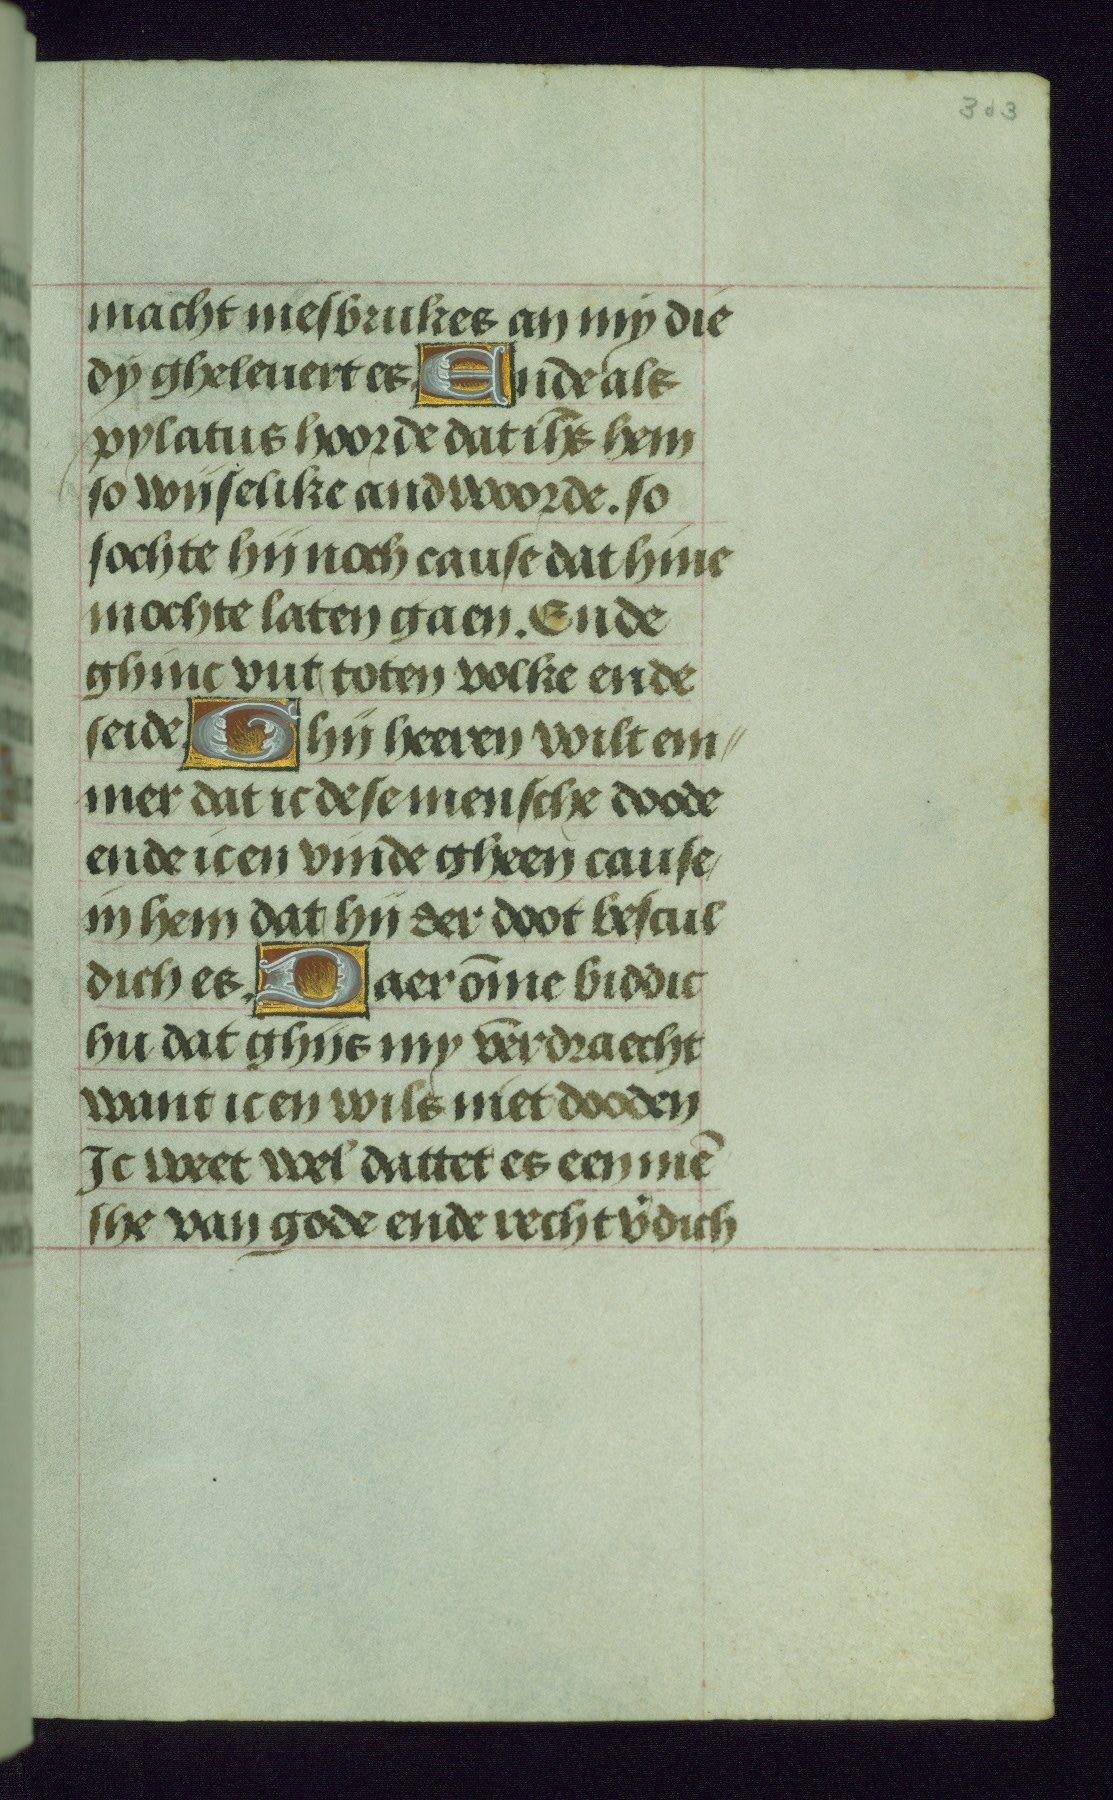 303
macht mesbrukes an mÿ die
dÿ gheleuert es. Ende als
pylatus hoorde dat ih̄s hem
so wijselike andwoorde. so
sochte hij noch cause dat hine
mochte laten gaen. Ende
ghinc vut toten volke ende
seide. Ghij heeren wilt em〃
mer dat ic dese mensche doode
ende ic en vinde gheen cause
in hem dat hij der doot bescul
dich es. Daer om̄e biddic
hu dat ghijs my v̄erdraecht
want ic en wils niet dooden
Ic weet wel dattet es een mē
she van gode ende rechtv̄dich